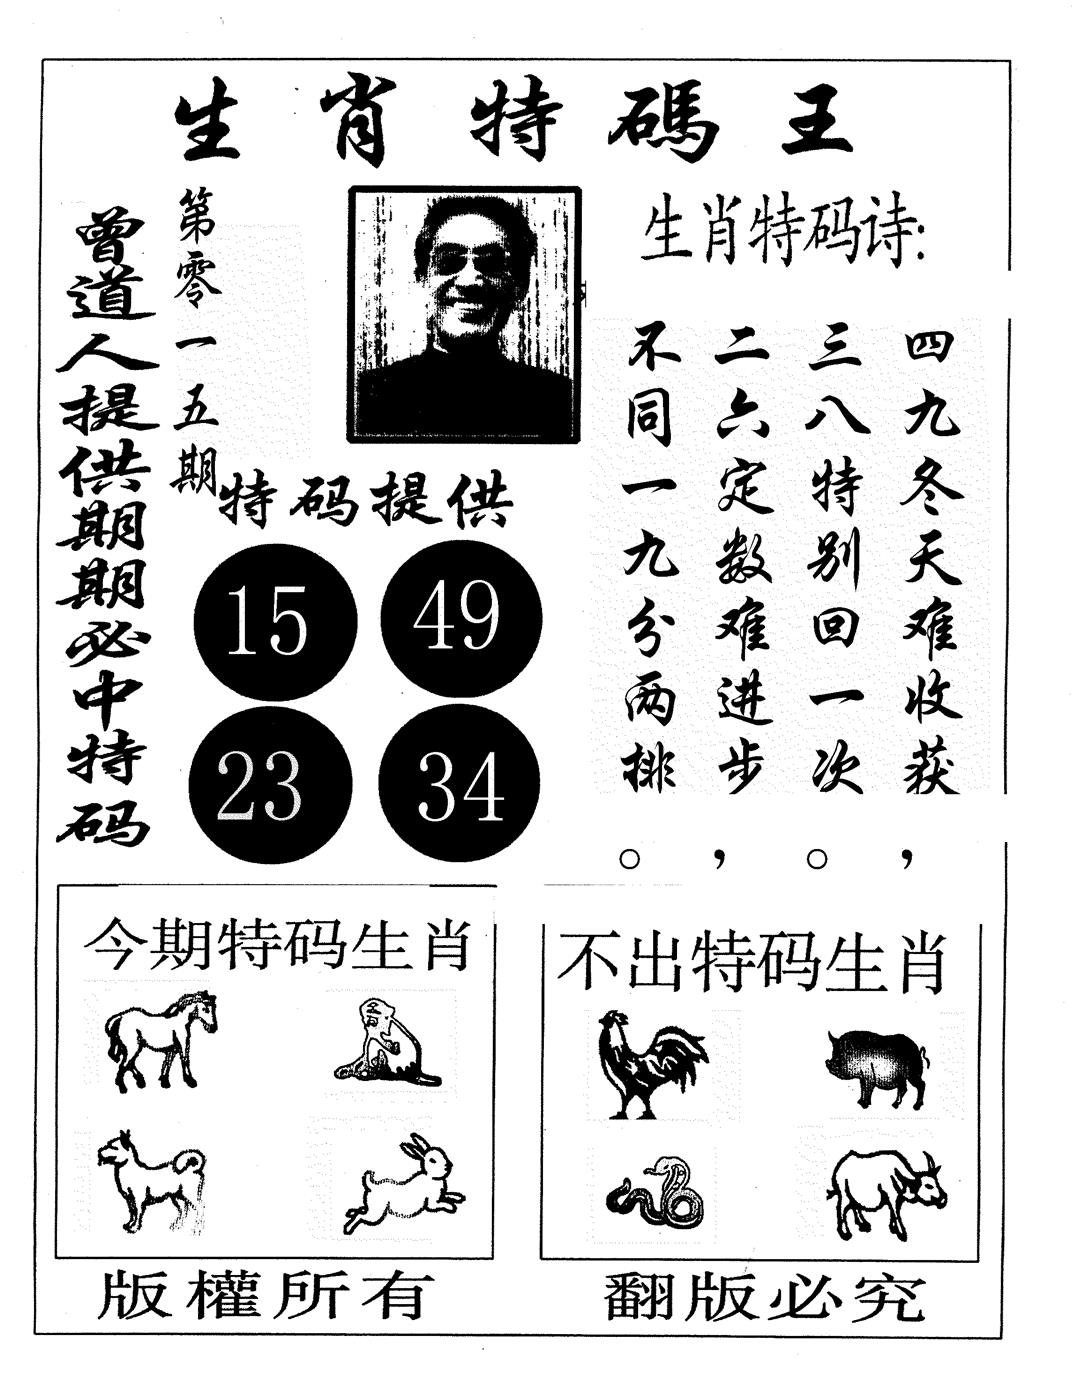 生肖特碼王
曾道人提供期期必中特码
第零一五期
生肖特码诗:
四九冬天难收获，
三八特别回一次。
二六定数难进步，
不同一九分两排。
特码提供
15 49
23 34
今期特码生肖
不出特码生肖
版權所有
翻版必究